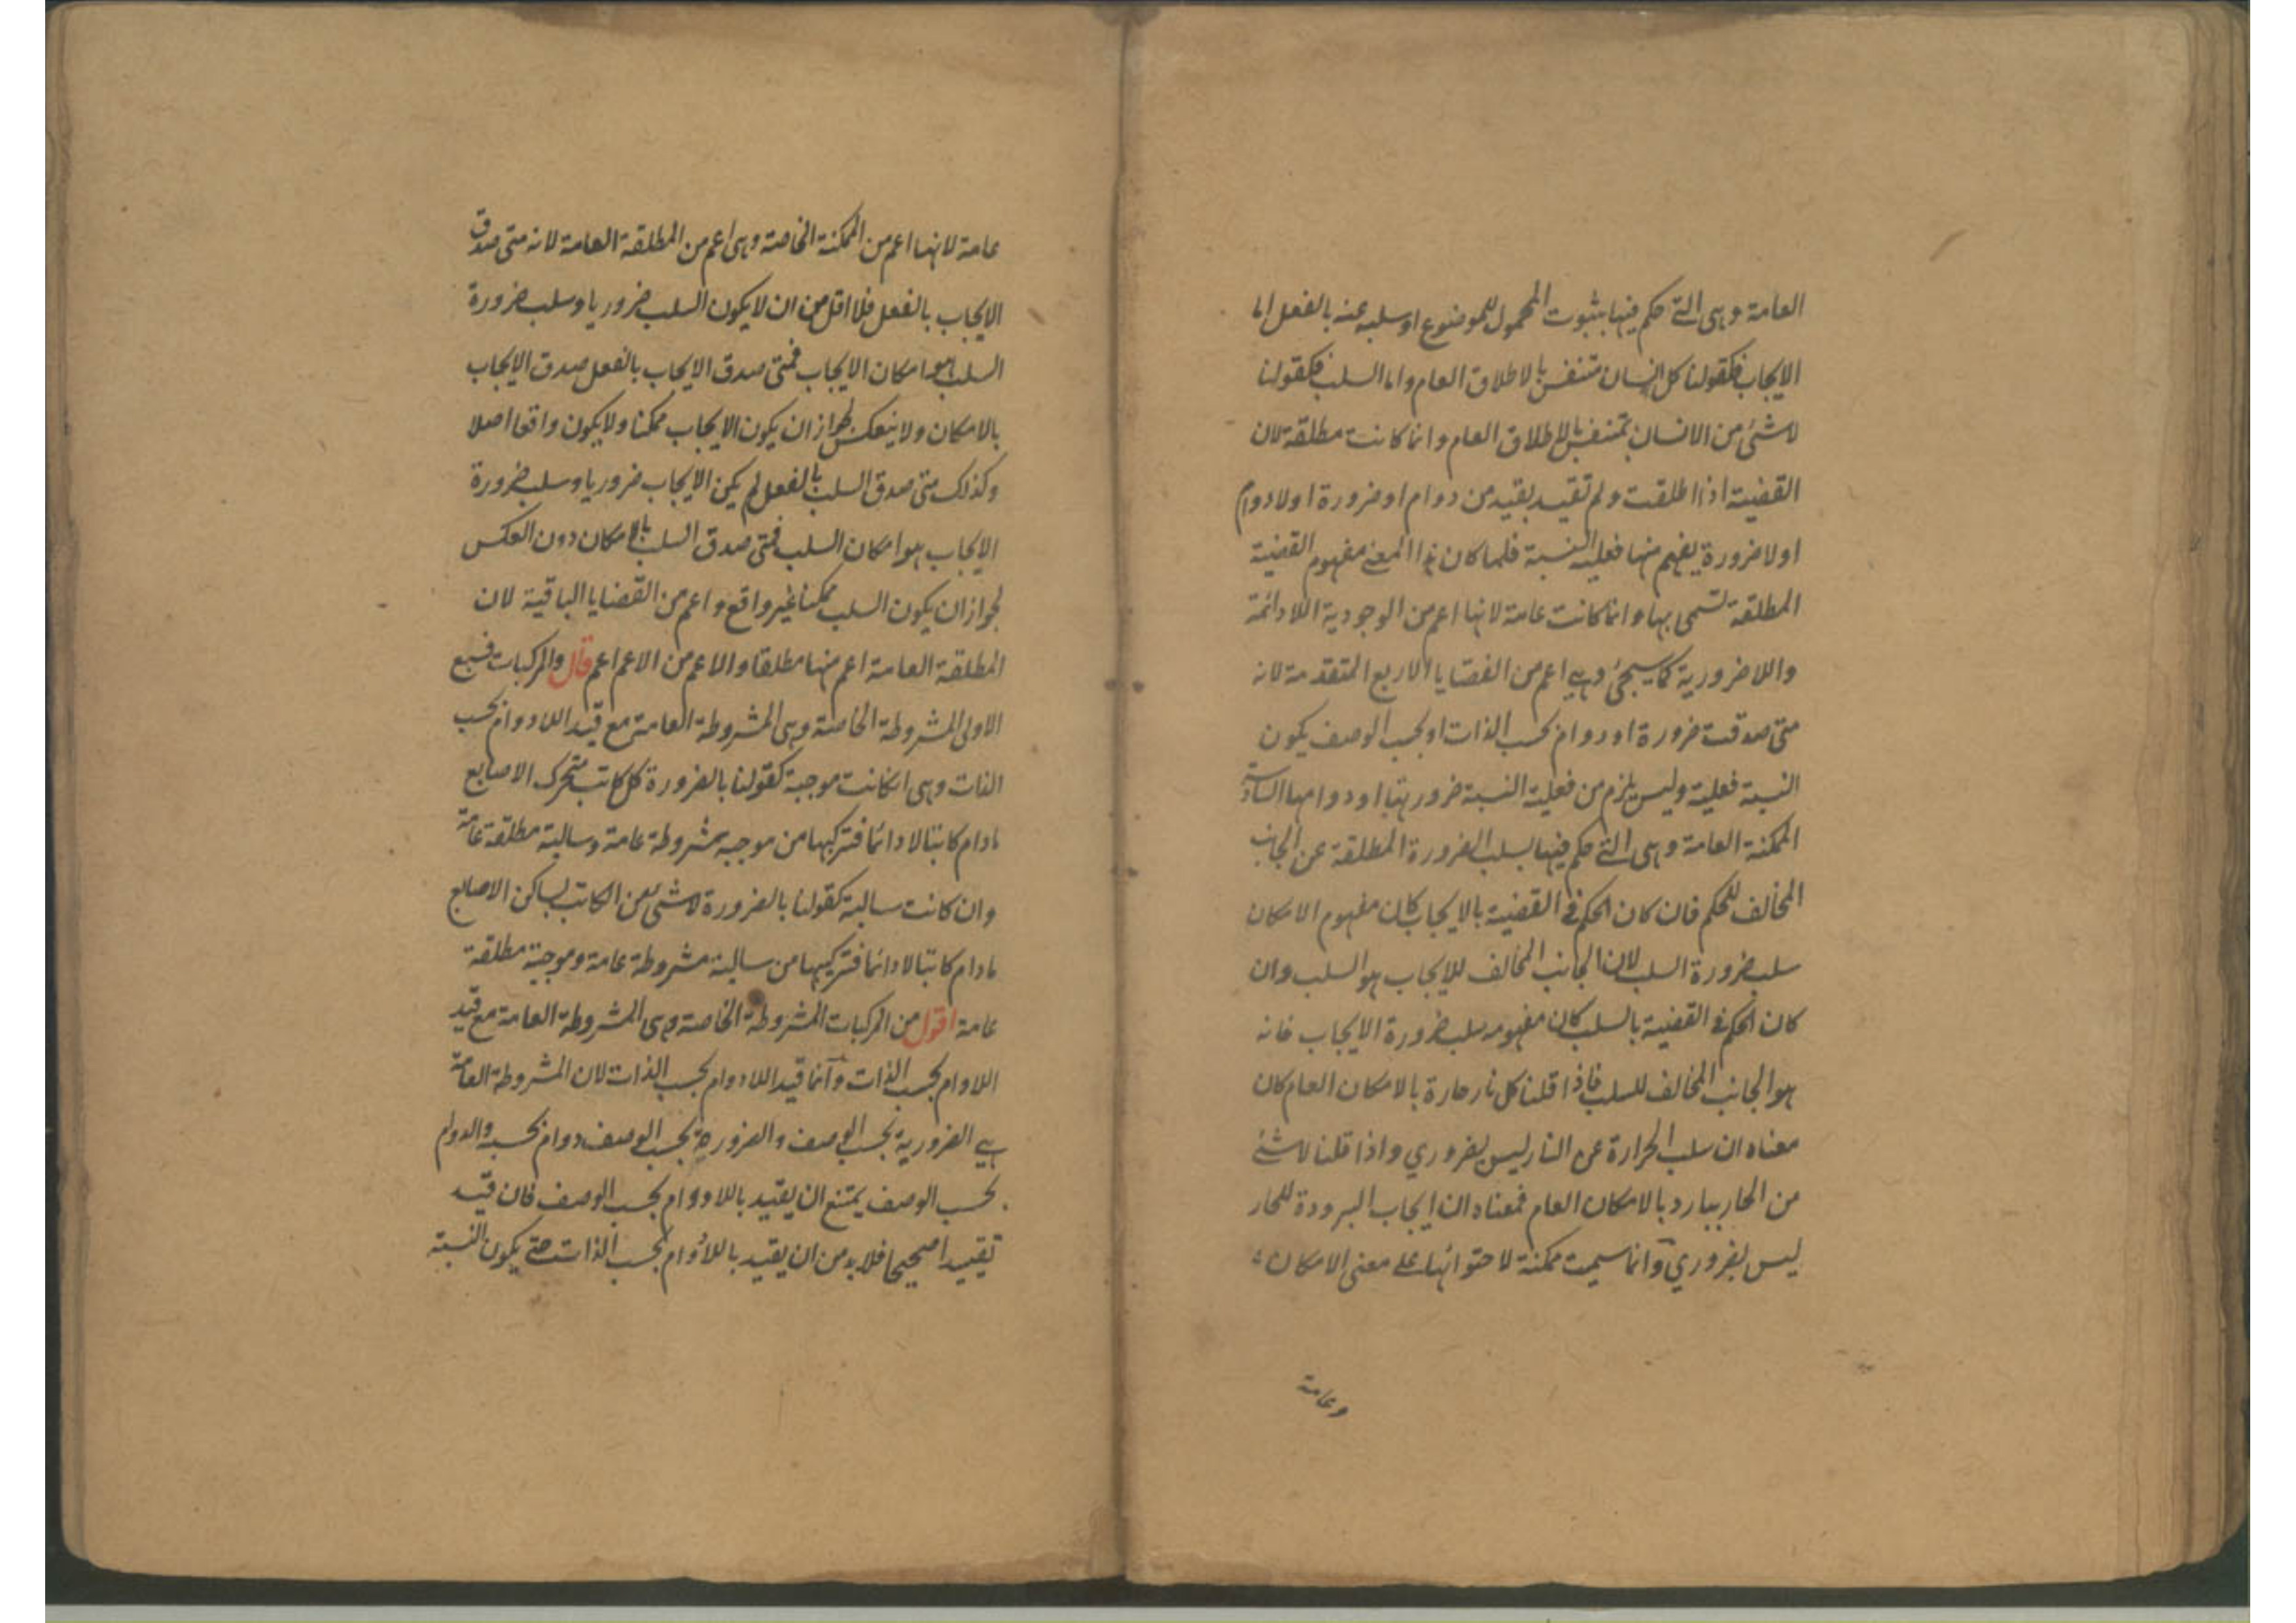 العامة وهى التى حكم فيها بثبوت المحمول للموضوع او سلبه عنه بالفعل اما
الايجاب فكقولنا كل انسان متنفس بالاطلاق العام واما السلب فكقولنا
لاشئ من الانسان بمتنفس بالاطلاق العام وانما كانت مطلقة لان
القضية اذا اطلقت ولم تقيد بقيد من دوام او ضرورة او لادوام
او لاضرورة يفهم منها فعلية النسبة فلما كان هذا المعنى مفهوم القضية
المطلقة تسمى بها وانما كانت عامة لانها اعم من الوجودية اللادائمة
واللاضرورية كما سيجئ وهى اعم من القضايا الاربع المتقدمة لانه
متى صدقت ضرورة او دوام بحسب الذات او بحسب الوصف يكون
النسبة فعلية وليس يلزم من فعلية النسبة ضرورتها او دوامها السادسة
الممكنة العامة وهى التى حكم فيها بسلب الضرورة المطلقة عن الجانب
المخالف للحكم فان كان الحكم فى القضية بالايجاب كان مفهوم الامكان
سلب ضرورة السلب لان الجانب المخالف للايجاب هو السلب وان
كان الحكم فى القضية بالسلب كان مفهومه سلب ضرورة الايجاب فانه
هو الجانب المخالف للسلب فاذا قلنا كل نار حارة بالامكان العام كان
معناه ان سلب الحرارة عن النار ليس بضروري واذا قلنا لاشئ
من الحار ببارد بالامكان العام فمعناه ان ايجاب البرودة للحار
ليس بضروري وانما سميت ممكنة لاحتوائها على معنى الامكان
وعامة
عامة لانها اعم من الممكنة الخاصة وهى اعم من المطلقة العامة لانه متى صدق
الايجاب بالفعل فلا اقل من ان لا يكون السلب ضروريا وسلب ضرورة
السلب هو امكان الايجاب فمتى صدق الايجاب بالفعل صدق الايجاب
بالامكان ولا ينعكس لجواز ان يكون الايجاب ممكنا ولا يكون واقعا اصلا
وكذلك متى صدق السلب بالفعل لم يكن الايجاب ضروريا وسلب ضرورة
الايجاب هو امكان السلب فمتى صدق السلب بالامكان دون العكس
لجواز ان يكون السلب ممكنا غير واقع واعم من القضايا الباقية لان
المطلقة العامة اعم منها مطلقا والاعم من الاعم اعم قال والمركبات فسبع
الاولى المشروطة الخاصة وهى المشروطة العامة مع قيد اللادوام بحسب
الذات وهى انكانت موجبة كقولنا بالضرورة كل كاتب متحرك الاصابع
مادام كاتبا لادائما فتركيبها من موجبة مشروطة عامة وسالبة مطلقة عامة
وان كانت سالبة كقولنا بالضرورة لاشئ من الكاتب بساكن الاصابع
مادام كاتبا لادائما فتركيبها من سالبة مشروطة عامة وموجبة مطلقة
عامة اقول من المركبات المشروطة الخاصة وهى المشروطة العامة مع قيد
اللاوام بحسب الذات وانما قيد اللادوام بحسب الذات لان المشروطة العامة
هى الضرورية بحسب الوصف والضرورة بحسب الوصف دوام بحسبه والدوام
بحسب الوصف يمتنع ان يقيد باللادوام بحسب الوصف فان قيد
تقييدا صحيحا فلابد من ان يقيد باللادوام بحسب الذات حتى يكون النسبة